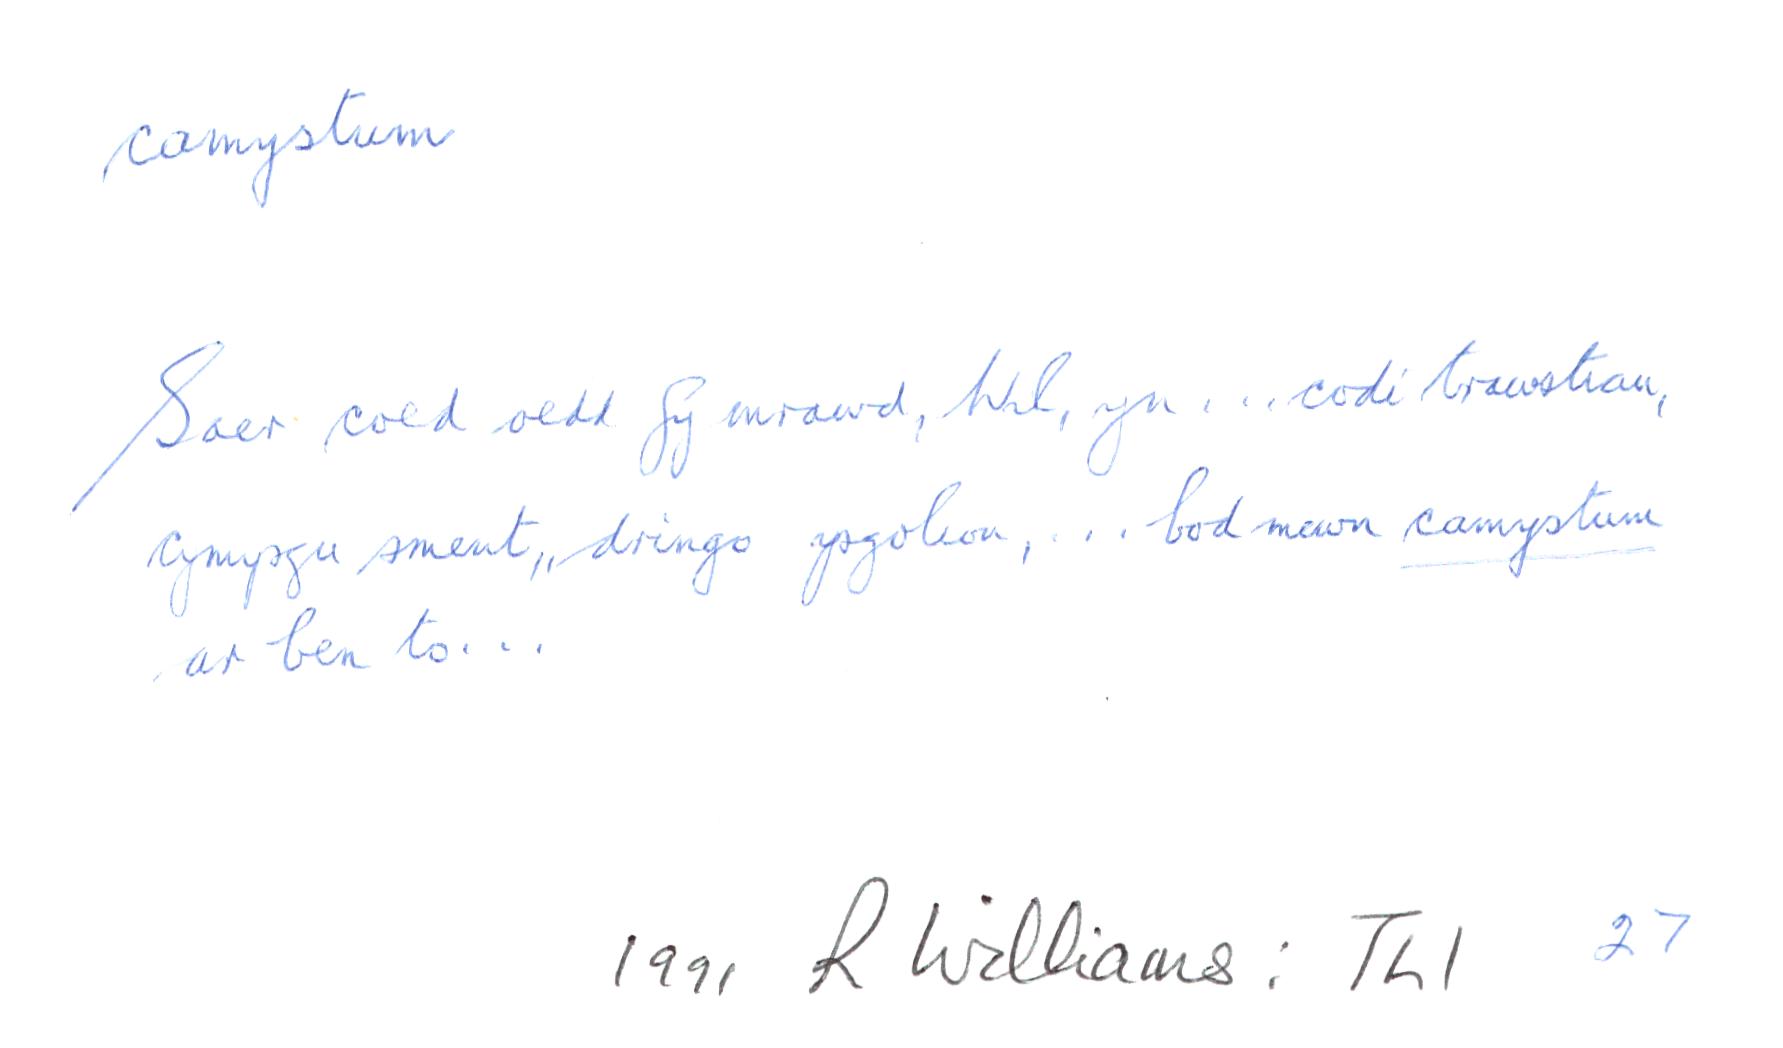 camystum
Saer coed oedd fy mrawd, Wil, yn ... codi trawstiau,
cymysgu sment,, dringo ysgolion, ... bod mewn camystum
ar ben to...
1991 R Williams: TLl 27